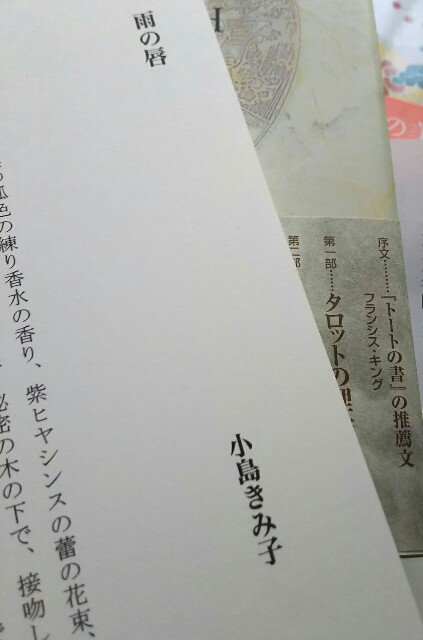 雨の唇
小島きみ子
色の練り香水の香り、紫ヒヤシンスの蕾の花束、
秘密の木の下で、接吻し
H
序文………『トートの書』の推薦文
フランシス・キング
第一部……タロットの
第二部
の